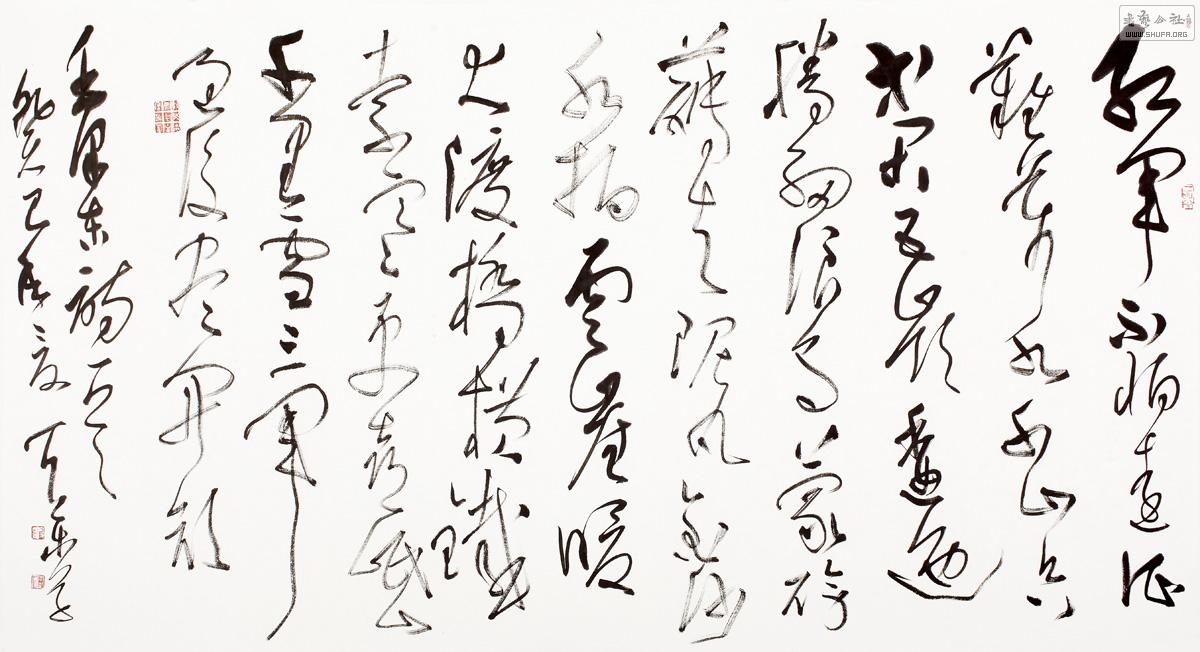 红军不怕远征
難万水千山只
等闲五岭逶迤
腾细浪乌蒙磅
礴走泥丸金沙
水拍云崖暖
大渡橋横鐵
索寒更喜岷山
千里雪三军
过后尽开颜
毛泽东詩一首
癸巳
书艺公社
WWW.SHUFA.ORG